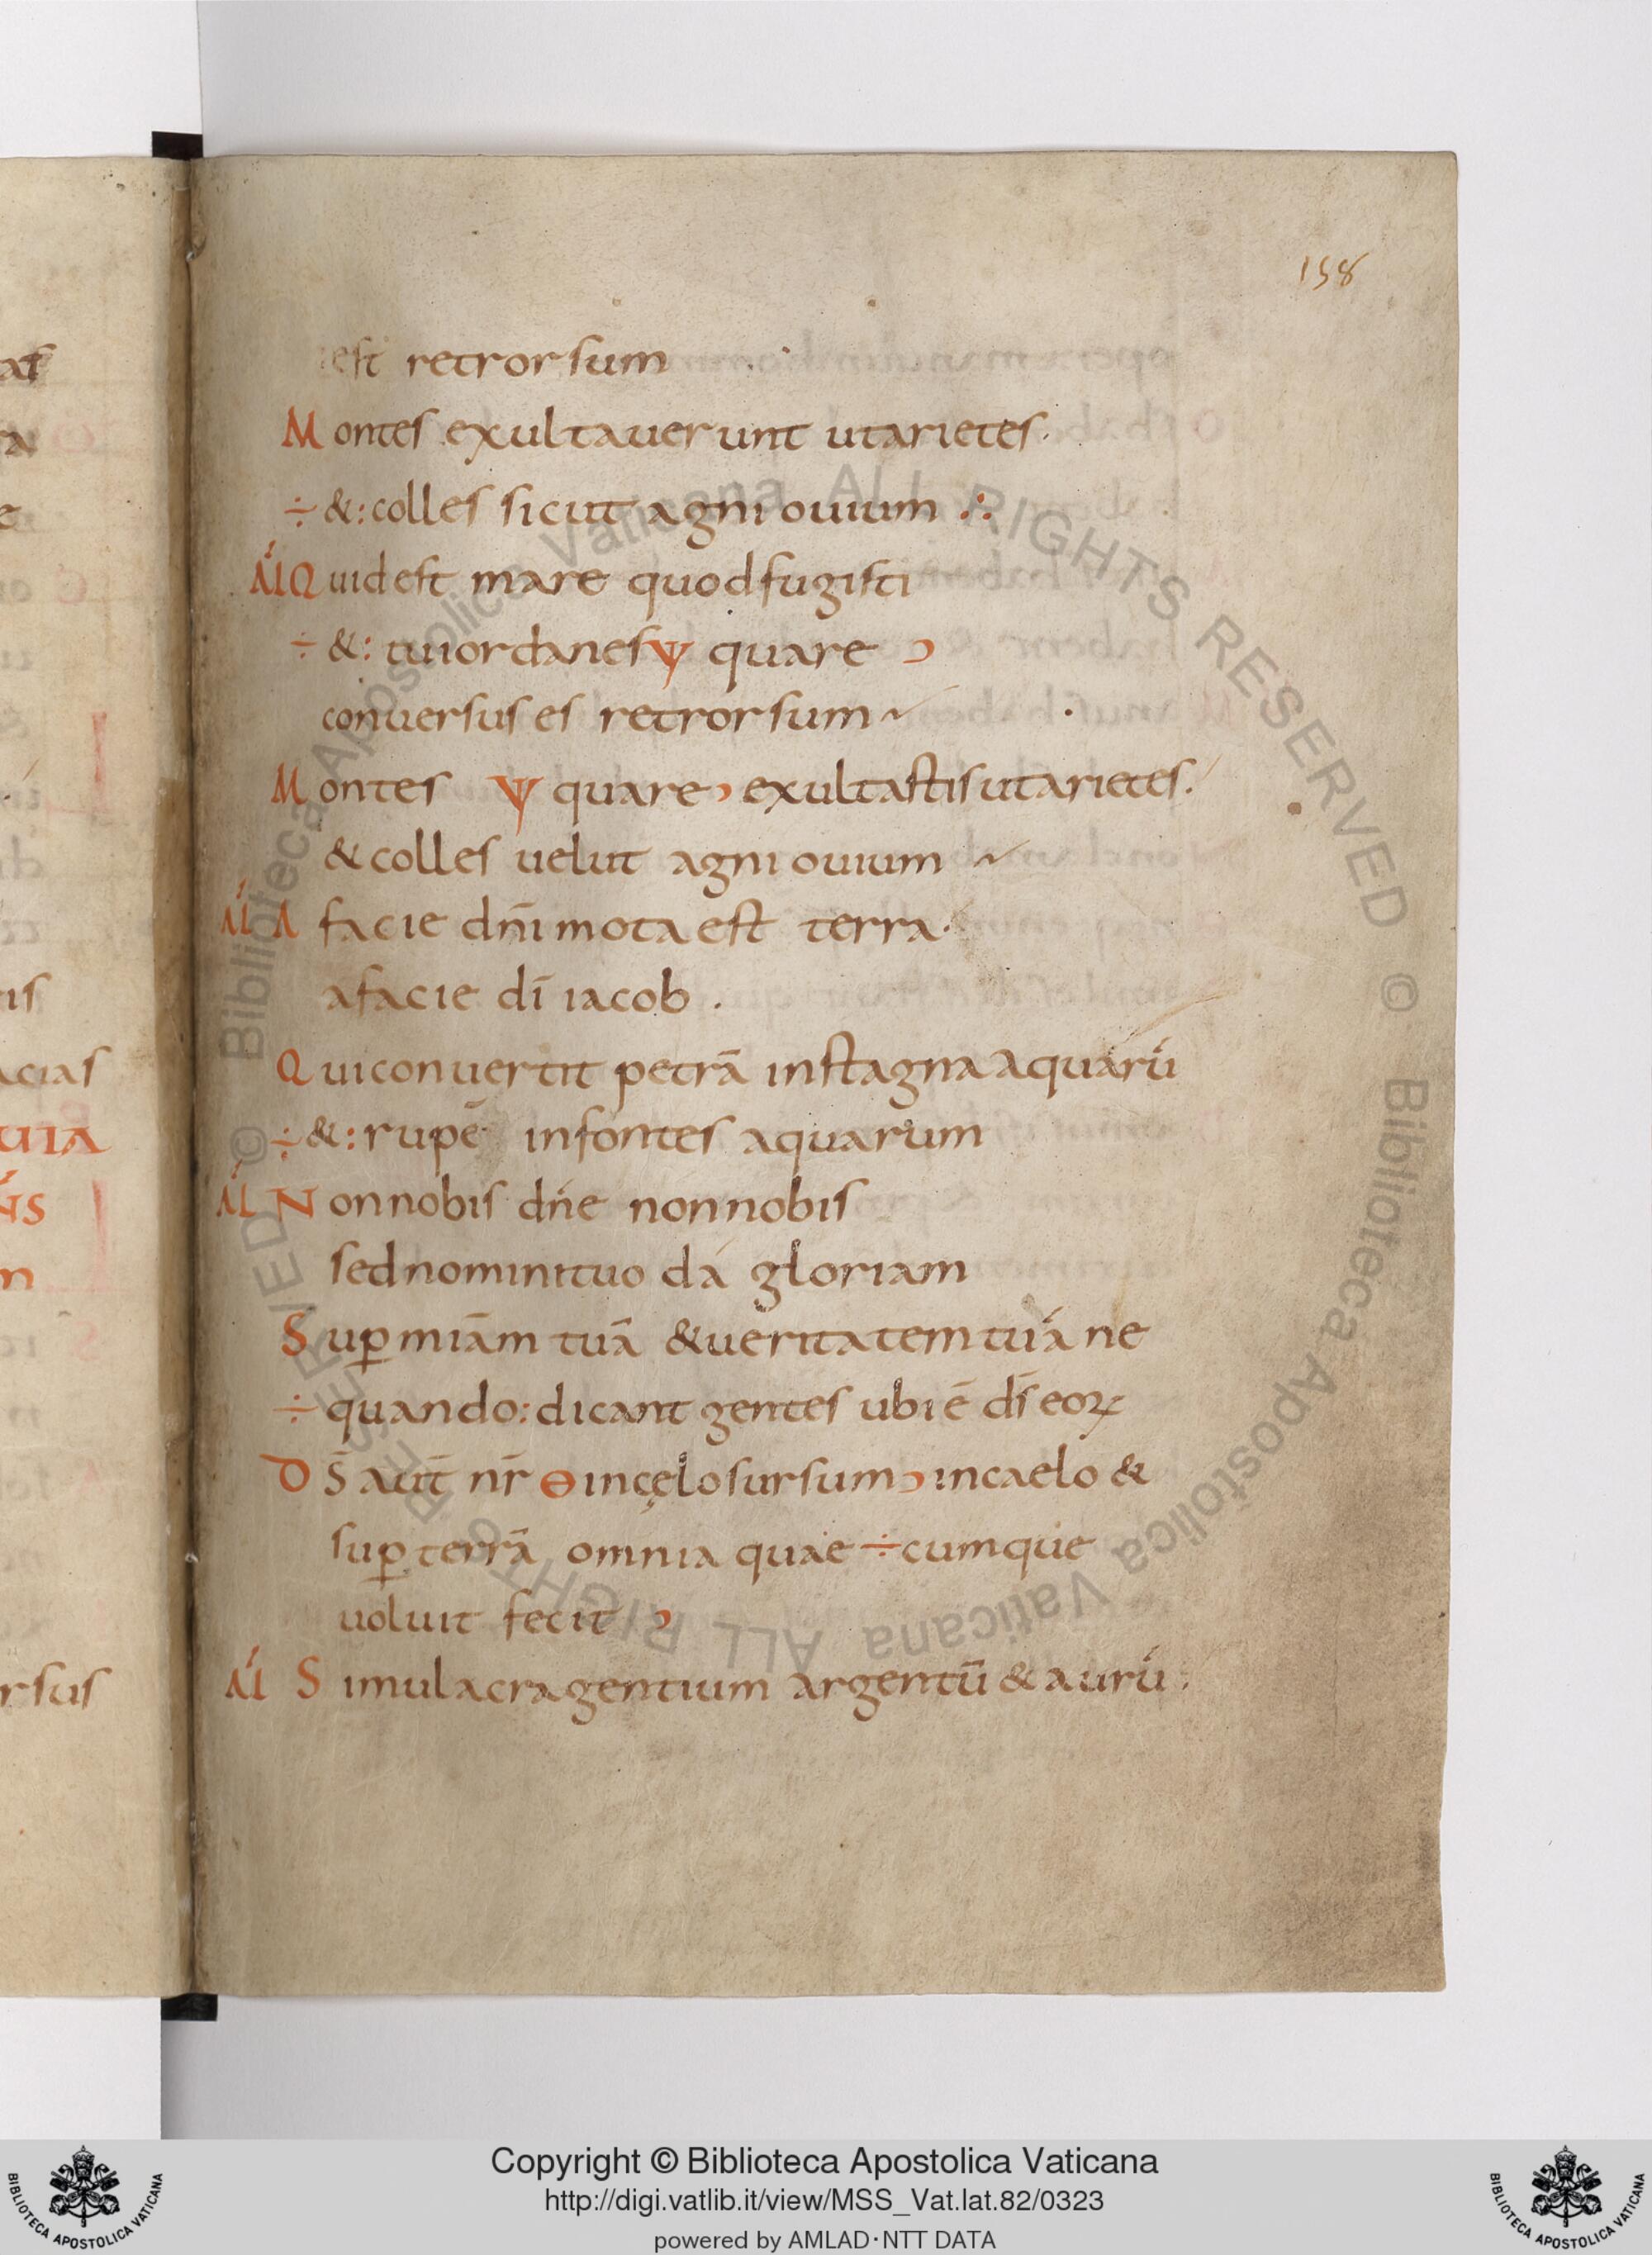 158
est retrorsum
Montes exultauerunt utarietes.
÷&:colles sicut agni ouium ∴
AĹ Quidest mare quodfugisti
÷&: tuiordanesψ quare ͻ
conuersuses retrorsum~
Montes ψ quareͻ exultastisutarietes.
&colles uelut agni ouium ~
AĹ A facie dn̄i mota est terra.
afacie dī iacob .
Quiconuertit petrā instagnaaquarū
÷&:rupē infontes aquarum
AĹ Nonnobis dn̄e nonnobis
sednominituo da gloriam
Suꝑ miām tuā &ueritatem tuā ne
÷quando:dicant gentes ubi ē dī eoꝝ
DS̄ aut̄ nr̄ ɵincęlosursumͻ incaelo &
suꝑ terrā omnia quae ÷cumque
uoluit fecit ͻ
AĹ Simulacragentium argentū & aurū :
at
ra
e
is
acias
UIA
N̄S
n
rsus
© Biblioteca Apostolica Vaticana ALL RIGHTS RESERVED © Biblioteca Apostolica Vaticana ALL RIGHTS RESERVED
Copyright © Biblioteca Apostolica Vaticana
http://digi.vatlib.it/view/MSS_Vat.lat.82/0323
powered by AMLAD·NTT DATA
BIBLIOTECA APOSTOLICA VATICANA
BIBLIOTECA APOSTOLICA VATICANA